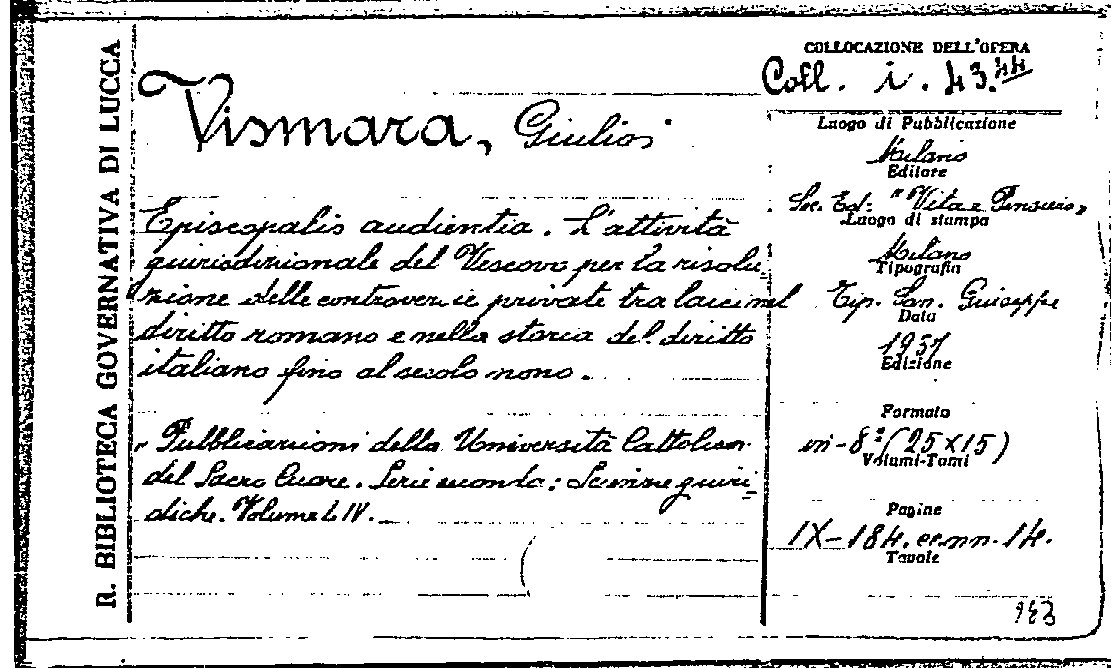 R. BIBLIOTECA GOVERNATIVA DI LUCCA
Vismara, Giulio
Episcopalis audientia. L'attività
giurisdizionale del Vescovo per la risolu-
zione delle controversie private tra laici nel
diritto romano e nella storia del diritto
italiano fino al secolo nono.
"Pubblicazioni della Università Cattolica
del Sacro Cuore. Serie seconda: Scienze giuri-
diche. Volume LIV.
COLLOCAZIONE DELL'OPERA
Coll. i. 43.44
Luogo di Pubblicazione
Milano
Editore
Soc. Ed: "Vita e Pensiero"
Luogo di stampa
Milano
Tipografia
Tip. San. Giuseppe
Data
1937
Edizione
Formato
in-8º (25x15)
Volumi-Tomi
Pagine
IX-184. e nn. 14.
Tavole